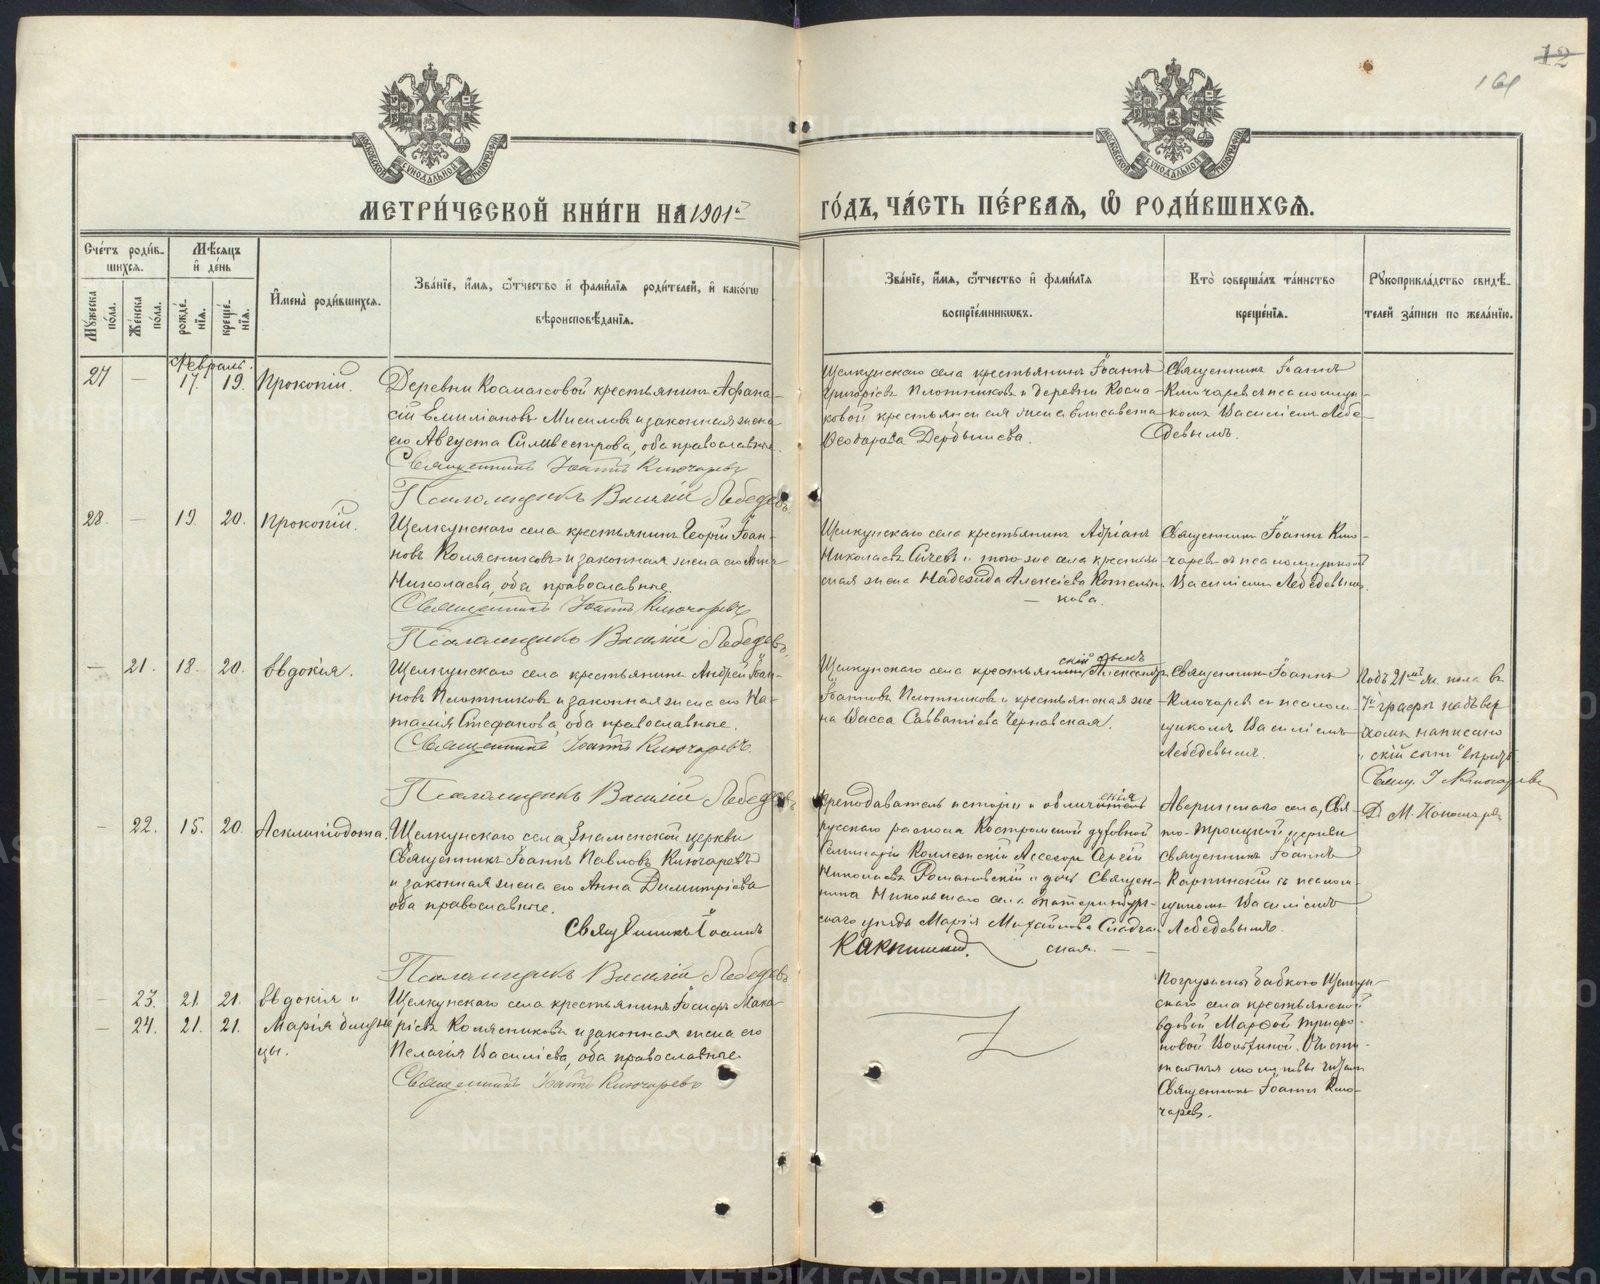 12
161
МОСКОВСКОЙ СѴНОДАЛЬНОЙ ТИПОГРАФІИ
МОСКОВСКОЙ СѴНОДАЛЬНОЙ ТИПОГРАФІИ
МЕТРИ́ЧЕСКОЙ КНИ́ГИ НА 1901й
ГО́ДЪ, ЧА́СТЬ ПЕ́РВАѦ, Ѽ РОДИ́ВШИХСѦ.
Сче́тъ роди́в-
шихсѧ.
Мѣ́сѧцъ
и҆ де́нь
Мꙋ́жеска по́ла.
Же́нска по́ла.
рожде́-
нїѧ.
креще́-
нїѧ.
И҆мена̀ роди́вшихсѧ.
Зва́нїе, и҆́мѧ, ѻ҆́тчество и҆ фами́лїѧ роди́телей, и҆ како́гѡ
вѣроисповѣ́данїѧ.
Зва́нїе, и҆́мѧ, ѻ҆́тчество и҆ фами́лїѧ
воспрїе́мникѡвъ.
Кто̀ соверша́лъ та́инство
креще́нїѧ.
Рꙋкоприкла́дство свидѣ́-
телей за́писи по жела́нїю.
Февраль.
27 — 17. 19. Прокопій.
Деревни Космаковой крестьянинъ Афана-
сій Емиліановъ Мисиловъ и законная жена
его Августа Силивестрова, оба православные.
Священникъ Іоаннъ Ключаревъ
Псаломщикъ Василій Лебедевъ
Щелкунскаго села крестьянинъ Іоаннъ
Григоріевъ Плотниковъ и деревни Косма-
ковой крестьянская жена Елисавета
Ѳеодорова Дербышева.
Священникъ Іоаннъ
Ключаревъ съ псаломщи-
комъ Василіемъ Лебе-
девымъ.
28. — 19. 20. Прокопій.
Щелкунскаго села крестьянинъ Георгій Іоан-
новъ Колясниковъ и законная жена его Анна
Николаева, оба православные.
Священникъ Іоаннъ Ключаревъ
Псаломщикъ Василій Лебедевъ.
Щелкунскаго села крестьянинъ Адріанъ
Николаевъ Сичевъ и того же села крестьян-
ская жена Надежда Алексіева Котельни-
— кова.
Священникъ Іоаннъ Клю-
чаревъ съ псаломщикомъ
Василіемъ Лебедевымъ.
— 21. 18. 20. Евдокія.
Щелкунскаго села крестьянинъ Андрей Іоан-
новъ Плотниковъ и законная жена его На-
талія Стефанова, оба православные.
Священникъ Іоаннъ Ключаревъ.
Псаломщикъ Василій Лебедевъ
скій сынъ
Щелкунскаго села крестьянинъ Александръ
Іоанновъ Плотниковъ и крестьянская же-
на Васса Савватіева Чернавская.
Священникъ Іоаннъ
Ключаревъ съ псалом-
щикомъ Василіемъ
Лебедевымъ.
Подъ 21мъ ж. пола въ
7й графѣ надъ вер-
хомъ написано
„скій сынъ“ вѣрить
Свящ. І Ключаревъ
Д. М. Пономаревъ
— 22. 15. 20. Асклипіодота.
Щелкунскаго села Знаменской церкви
Священникъ Іоаннъ Павловъ Ключаревъ
и законная жена его Анна Димитріева
оба православные.
Священникъ Іоаннъ
Псаломщикъ Василій Лебедевъ
Преподаватель исторіи и обличенія
русскаго раскола Костромской духовной
Семинаріи Коллежскій Ассесоръ Сергій
Николаевъ Романовскій и дочь Священ-
ника Никольскаго села Екатеринбург-
скаго уѣзда Марія Михайлова
ская. —
Аверинскаго села, Свя-
то-Троицкой церкви
священникъ Іоаннъ
Карпинскій съ псалом-
щикомъ Василіемъ
Лебедевымъ.
— 23. 21. 21. Евдокія и
— 24. 21. 21. Марія близне-
цы.
Щелкунскаго села крестьянинъ Іосифъ Мака-
ріевъ Колясниковъ и законная жена его
Пелагія Василіева, оба православные
Священникъ Іоаннъ Ключаревъ
Погружены бабкою Щелкун-
скаго села крестьянской
вдовой Марѳой Трифо-
новой. Очисти-
тельныя молитвы читалъ
Священникъ Іоаннъ Клю-
чаревъ.
METRIKI.GASO-URAL.RU